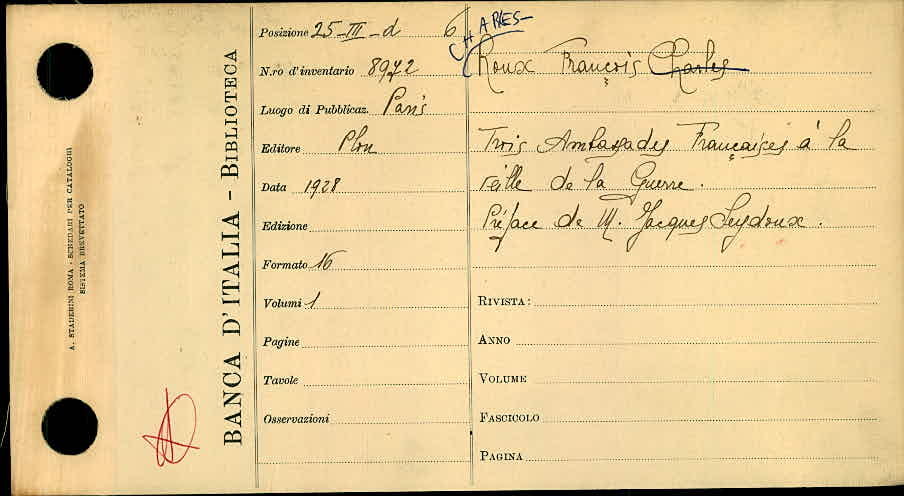 A. STADERINI ROMA - SCHEDARI PER CATALOGHI
SISTEMA BREVETTATO
BANCA D'ITALIA - BIBLIOTECA
Posizione 25-III-d 6
N.ro d'inventario 8972
Luogo di Pubblicaz. Paris
Editore Plon
Data 1928
Edizione
Formato 16
Volumi 1
Pagine
Tavole
Osservazioni
CHARLES-
Roux François Charles
Trois Ambassades Françaises à la
veille de la Guerre.
Préface de M. Jacques Seydoux.
RIVISTA:
ANNO
VOLUME
FASCICOLO
PAGINA